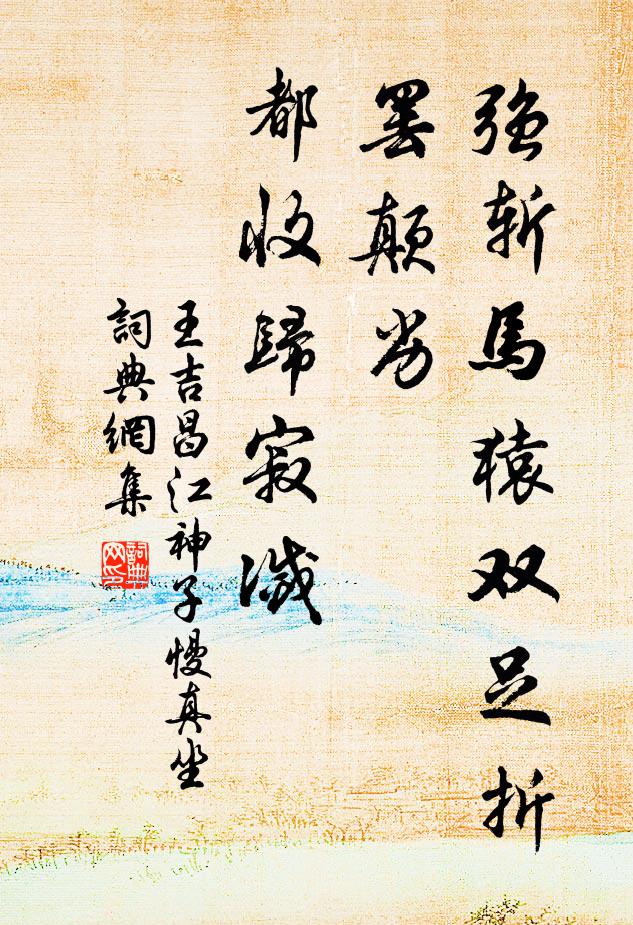 强斩馬猿双足折
罢颠劣
都收歸寂滅
王吉昌江神子慢真坐
詞典網集
詞典网印